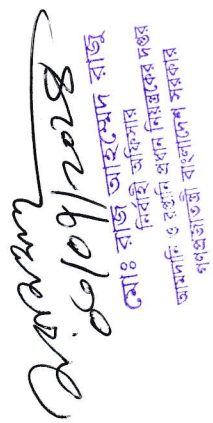 ০৪/০৭/২০২৪
মোঃ রাজু আহম্মেদ রাজু
নির্বাহী অফিসার
আমদানি ও রপ্তানি প্রধান নিয়ন্ত্রকের দপ্তর
গণপ্রজাতন্ত্রী বাংলাদেশ সরকার